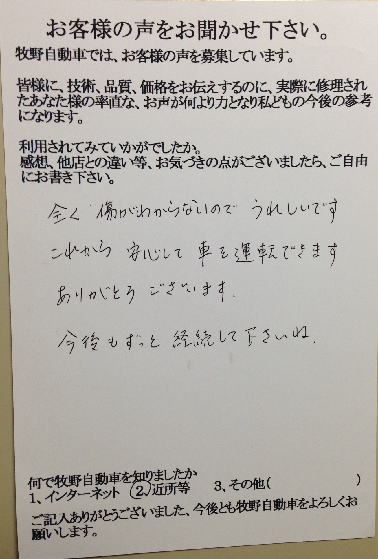 お客様の声をお聞かせ下さい。
牧野自動車では、お客様の声を募集しています。
皆様に、技術、品質、価格をお伝えするのに、実際に修理され
たあなた様の率直な、お声が何より力となり私どもの今後の参考
になります。
利用されてみていかがでしたか。
感想、他店との違い等、お気づきの点がございましたら、ご自由
にお書き下さい。
全く傷がわからないので うれしいです
これから 安心して 車を運転できます
ありがとう ございます.
今後もずっと 経続して下さいね.
何で牧野自動車を知りましたか
1、インターネット ②近所等 3、その他( )
ご記入ありがとうございました、今後とも牧野自動車をよろしくお
願いします。